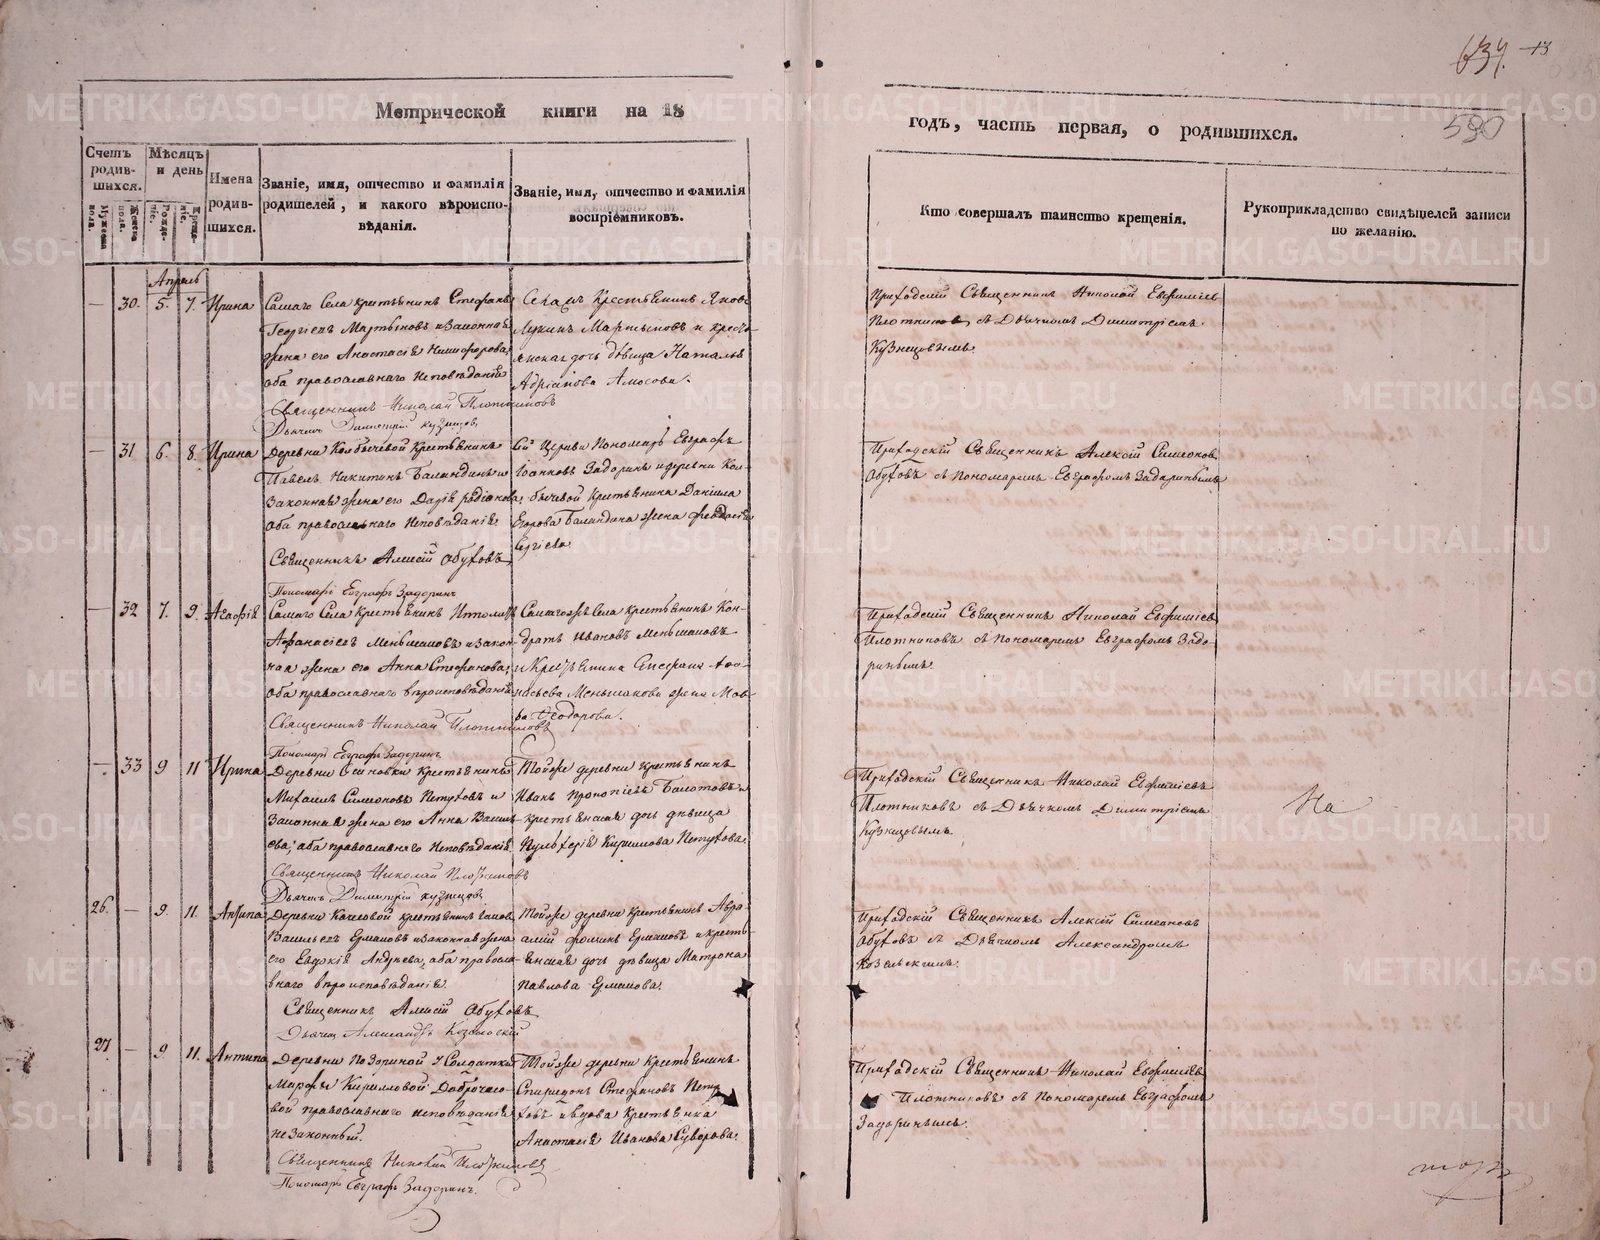 634. 13
590
Метрической книги на 18
годъ, часть первая, о родившихся.
Счетъ родив-шихся.
Мужеска пола.
Женска пола.
Мѣсяцъ и день
Рожде-нія.
Креще-нія.
Имена родив-шихся.
Званіе, имя, отчество и фамилія родителей, и какого вѣроиспо-вѣданія.
Званіе, имя, отчество и фамилія воспріемниковъ.
Кто совершалъ таинство крещенія.
Рукоприкладство свидѣтелей записи по желанію.
Апрель
— 30. 5. 7. Ирина
Самаго Села крестьянинъ Стефанъ
Георгіевъ Мартыновъ и Законная
жена его Анастасія Никифорова,
оба православнаго исповѣданія
Священникъ Николай Плотниковъ
Дьячекъ Димитрій Кузнецовъ
Крестьянинъ Яковъ
Лукинъ Мартыновъ и кресть-
янская дочь дѣвица Наталья
Адріанова Амосова.
Приходскій Священникъ Николай Евфиміевъ
Плотниковъ съ Дьячкомъ Димитріемъ
Кузнецовымъ.
— 31 6. 8. Ирина
Деревни Колбычевой Крестьянинъ
Павелъ Никитинъ Баландинъ и
Законная жена его Дарія Родіонова,
оба православнаго исповѣданія
Священникъ Алексій Обуховъ
Пономарь Евграфъ Задоринъ
Церкви Пономарь Евграфъ
Іоанновъ Задоринъ и деревни Кол-
бычевой Крестьянина Даніила
Егорова Баландина жена Феодосія
Сергіева
Приходскій Священникъ Алексій Симеоновъ
Обуховъ съ пономаремъ Евграфомъ Задоринымъ
— 32 7. 9. Агафія
Самаго Села Крестьянинъ
Афанасіевъ Меньшаковъ и закон-
ная жена его Анна Стефанова,
оба православнаго вѣроисповѣданія
Священникъ Николай Плотниковъ
Пономарь Евграфъ Задоринъ
Самагоже Села крестьянинъ Кон-
дратъ Ивановъ Меньшаковъ
и Крестьянина Афо-
насьева Меньшакова жена Мав-
ра Феодорова.
Приходскій Священникъ Николай Евфиміевъ
Плотниковъ съ пономаремъ Евграфомъ Задо-
ринымъ.
— 33 9 11 Ирина
Деревни Осиновки крестьянинъ
Михаилъ Симеоновъ Петуховъ и
Законная жена его Анна Василь-
ева, оба православнаго исповѣданія
Священникъ Николай Плотниковъ
Дьячекъ Димитрій Кузнецовъ
Тойже деревни крестьянинъ
Иванъ Прокопіевъ Болотовъ и
крестьянская дочь дѣвица
Пульхерія Кириллова Петухова.
Приходскій Священникъ Николай Евфиміевъ
Плотниковъ съ Дьячкомъ Димитріемъ
Кузнецовымъ.
На
26. — 9. 11. Антипа
Деревни крестьянинъ
Васильевъ Ермаковъ и законная жена
его Евдокія Андреева, оба правосла-
внаго вѣроисповѣданія.
Священникъ Алексій Обуховъ
Дьячекъ Александръ Козельскій
Тойже деревни крестьянинъ Авра-
амій Фоминъ Ермаковъ и кресть-
янская дочь дѣвица Матрона
Павлова Ермакова.
Приходскій Священникъ Алексій Симеоновъ
Обуховъ съ Дьячкомъ Александромъ
Козельскимъ.
27 — 9 11. Антипа
Деревни Позариной у Солдатки
Марфы Кирилловой Доброчасо-
вой православнаго исповѣданія
незаконный.
Священникъ Николай Плотниковъ
Пономарь Евграфъ Задоринъ.
Тойже деревни Крестьянинъ
Спиридонъ Стефановъ Пету-
ховъ и вдова Крестьянка
Анастасія Иванова Суворова.
Приходскій Священникъ Николай Евфиміевъ
Плотниковъ съ пономаремъ Евграфомъ
Задоринымъ.
METRIKI.GASO-URAL.RU